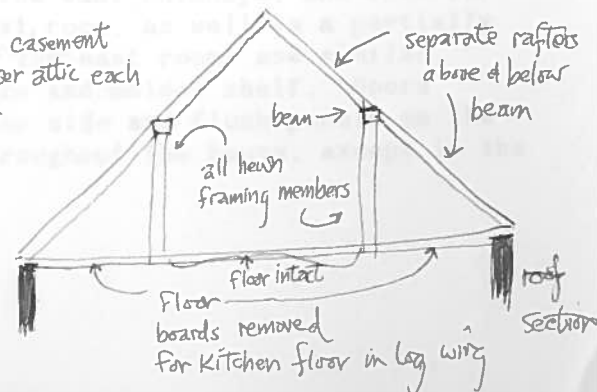 casement
attic each
separate rafters
above & below
beam
beam
all hewn
framing members
floor intact
Floor
boards removed
for Kitchen floor in log wing
roof
section